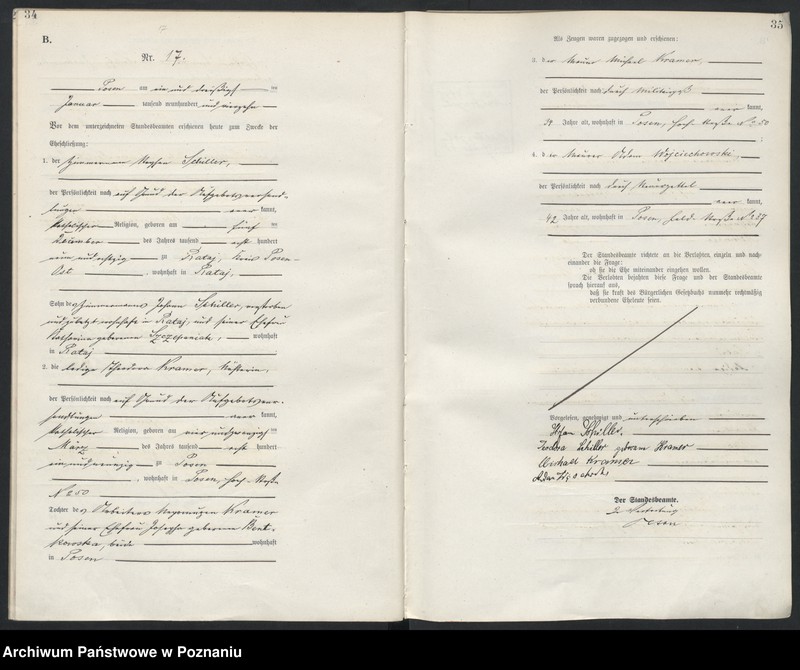 34
B.
Nr. 17.
Posen am ein und dreißigsten
Januar tausend neunhundert und vierzehn
Vor dem unterzeichneten Standesbeamten erschienen heute zum Zwecke der
Eheschließung:
1. der Zimmermann Schiller,
der Persönlichkeit nach auf Grund der Aufgebotsverhand-
lungen kannt,
katholischer Religion, geboren am fünften
Dezember des Jahres tausend acht hundert
neun und achtzig zu Rataj, Kreis Posen-
Ost, wohnhaft in Rataj,
Sohn des Zimmermanns Johann Schiller, verstorben
und zuletzt wohnhaft in Rataj, und seiner Ehefrau
Katharina geborenen Szczepaniak, wohnhaft
in Rataj
2. die ledige Theodora Kramer,
der Persönlichkeit nach auf Grund der Aufgebotsver-
handlungen kannt,
katholischer Religion, geboren am vierundzwanzigsten
März des Jahres tausend acht hundert
ein und neunzig zu Posen
, wohnhaft in Posen, Straße
No 50
Tochter des Arbeiters Kramer
und seiner Ehefrau Josepha geborenen
kowska, beide wohnhaft
in Posen
35
Als Zeugen waren zugezogen und erschienen:
3. der Maurer Michael Kramer,
der Persönlichkeit nach durch Militärpaß
kannt,
34 Jahre alt, wohnhaft in Posen, Straße No 50
;
4. der Maurer Adam Wojciechowski,
der Persönlichkeit nach durch
kannt,
42 Jahre alt, wohnhaft in Posen, Straße No 37
.
Der Standesbeamte richtete an die Verlobten, einzeln und nach-
einander die Frage:
ob sie die Ehe miteinander eingehen wollen.
Die Verlobten bejahten diese Frage und der Standesbeamte
sprach hierauf aus,
daß sie kraft des Bürgerlichen Gesetzbuchs nunmehr rechtmäßig
verbundene Eheleute seien.
Vorgelesen, genehmigt und unterschrieben
Schiller.
Teodora Schiller geboren Kramer
Michael Kramer
Adam
Der Standesbeamte.
In Vertretung
Archiwum Państwowe w Poznaniu